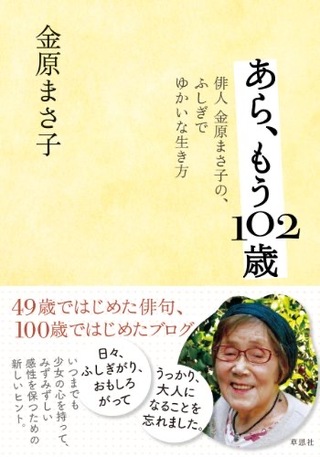 あら、もう102歳
俳人 金原まさ子の、
ふしぎで
ゆかいな生き方
金原まさ子
49歳ではじめた俳句、
100歳ではじめたブログ
うっかり、
大人に
なることを
忘れました。
日々、
ふしぎがり、
おもしろ
がって
いつまでも
少女の心を持って、
みずみずしい
感性を保つための
新しいヒント。
草思社